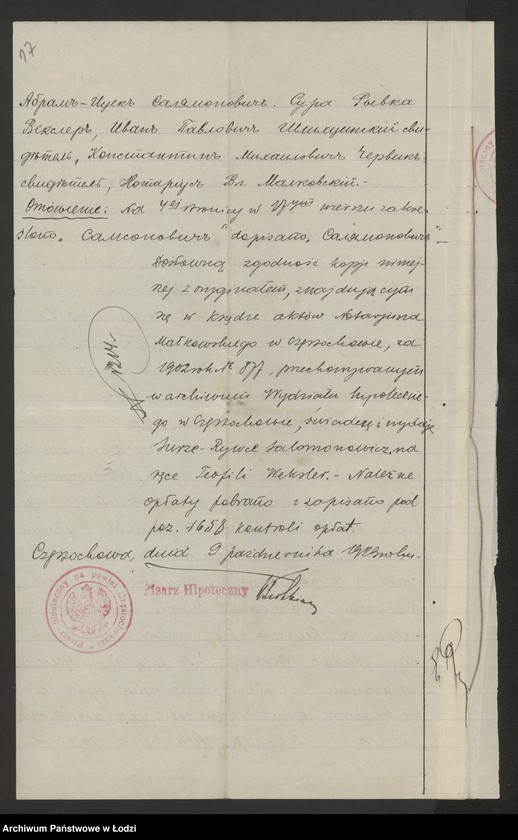 17
Абрамъ-Ицекъ Салямоновичъ. Сура Рывка
Векслеръ, Иванъ Павловичъ сви-
дѣтель, Константинъ Михаиловичъ Червикъ
свидѣтель, Нотаріусъ Вл. Малковскій.-
Omówienie: Na 4ej stronicy w 17ym wierszu zakre-
ślono „Самсоновичъ" dopisano „Салямоновичъ"-
Dosłowną zgodność kopji niniej-
szej z oryginałem, znajdującym
się w księdze aktów Notarjusza
Małkowskiego w Częstochowie, za
1902 rok № 877, przechowywanym
w archiwum Wydziału hipoteczne-
go w Częstochowie, świadczę i wydaję
Surze-Rywce Salomonowicz, na
ręce Teofili Weksler.- Należne
opłaty pobrano i zapisano pod
poz. 1658 kontroli opłat.
Częstochowa, dnia 9 października roku.
№ 1214.-
Pisarz Hipoteczny
Pisarz Hipoteczny na powiat Częstochowski
Archiwum Państwowe w Łodzi